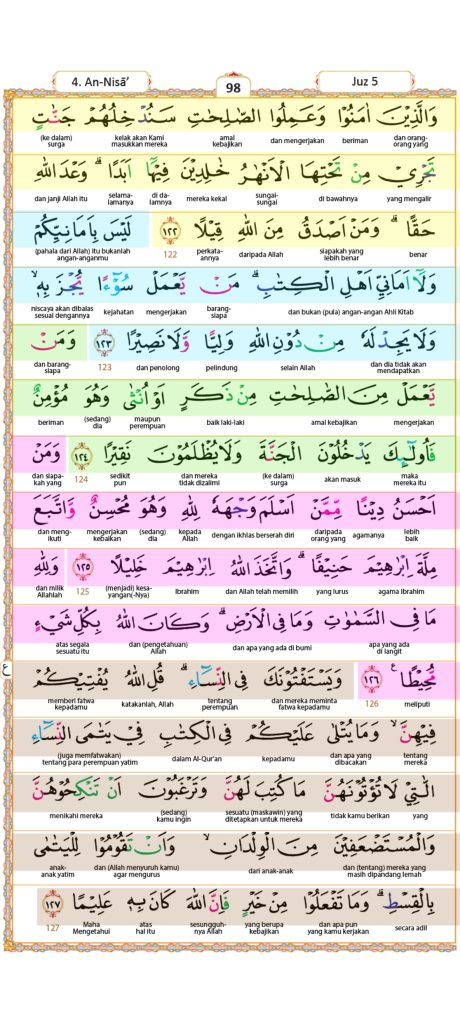 4. An-Nisā’
98
Juz 5
وَالَّذِيْنَ اٰمَنُوْا وَعَمِلُوا الصّٰلِحٰتِ سَنُدْخِلُهُمْ جَنّٰتٍ
dan orang-orang yang beriman dan mengerjakan amal kebajikan kelak akan Kami masukkan mereka (ke dalam) surga
تَجْرِيْ مِنْ تَحْتِهَا الْاَنْهٰرُ خٰلِدِيْنَ فِيْهَآ اَبَدًاۗ وَعْدَ اللّٰهِ
yang mengalir di bawahnya sungai-sungai mereka kekal di dalamnya selama-lamanya dan janji Allah itu
حَقًّاۗ وَمَنْ اَصْدَقُ مِنَ اللّٰهِ قِيْلًا ١٢٢ لَيْسَ بِاَمَانِيِّكُمْ
benar siapakah yang lebih benar daripada Allah perkataannya 122 (pahala dari Allah) itu bukanlah angan-anganmu
وَلَآ اَمَانِيِّ اَهْلِ الْكِتٰبِۗ مَنْ يَّعْمَلْ سُوْۤءًا يُّجْزَ بِهٖۙ
dan bukan (pula) angan-angan Ahli Kitab barang-siapa mengerjakan kejahatan niscaya akan dibalas sesuai dengannya
وَلَا يَجِدْ لَهٗ مِنْ دُوْنِ اللّٰهِ وَلِيًّا وَّلَا نَصِيْرًا ١٢٣ وَمَنْ
dan dia tidak akan mendapatkan selain Allah pelindung dan penolong 123 dan barang-siapa
يَّعْمَلْ مِنَ الصّٰلِحٰتِ مِنْ ذَكَرٍ اَوْ اُنْثٰى وَهُوَ مُؤْمِنٌ
mengerjakan amal kebajikan baik laki-laki maupun perempuan (sedang) dia beriman
فَاُولٰۤىِٕكَ يَدْخُلُوْنَ الْجَنَّةَ وَلَا يُظْلَمُوْنَ نَقِيْرًا ١٢٤ وَمَنْ
maka mereka itu akan masuk (ke dalam) surga dan mereka tidak dizalimi sedikit pun 124 dan siapa-kah yang
اَحْسَنُ دِيْنًا مِّمَّنْ اَسْلَمَ وَجْهَهٗ لِلّٰهِ وَهُوَ مُحْسِنٌ وَّاتَّبَعَ
lebih baik agamanya daripada orang yang dengan ikhlas berserah diri kepada Allah (sedang) dia mengerjakan kebaikan dan meng-ikuti
مِلَّةَ اِبْرٰهِيْمَ حَنِيْفًاۗ وَاتَّخَذَ اللّٰهُ اِبْرٰهِيْمَ خَلِيْلًا ١٢٥ وَلِلّٰهِ
agama Ibrahim yang lurus dan Allah telah memilih Ibrahim (menjadi) kesa-yangan(-Nya) 125 dan milik Allahlah
مَا فِى السَّمٰوٰتِ وَمَا فِى الْاَرْضِۗ وَكَانَ اللّٰهُ بِكُلِّ شَيْءٍ
apa yang ada di langit dan apa yang ada di bumi dan (pengetahuan) Allah atas segala sesuatu itu
مُّحِيْطًا ࣖ ١٢٦ وَيَسْتَفْتُوْنَكَ فِى النِّسَاۤءِۗ قُلِ اللّٰهُ يُفْتِيْكُمْ
meliputi 126 dan mereka meminta fatwa kepadamu tentang perempuan katakanlah, Allah memberi fatwa kepadamu
ع
فِيْهِنَّۙ وَمَا يُتْلٰى عَلَيْكُمْ فِى الْكِتٰبِ فِيْ يَتٰمَى النِّسَاۤءِ
tentang mereka dan apa yang dibacakan kepadamu dalam Al-Qur’an (juga memfatwakan) tentang para perempuan yatim
الّٰتِيْ لَا تُؤْتُوْنَهُنَّ مَا كُتِبَ لَهُنَّ وَتَرْغَبُوْنَ اَنْ تَنْكِحُوْهُنَّ
yang tidak kamu berikan sesuatu (maskawin) yang ditetapkan untuk mereka (sedang) kamu ingin menikahi mereka
وَالْمُسْتَضْعَفِيْنَ مِنَ الْوِلْدَانِۙ وَاَنْ تَقُوْمُوْا لِلْيَتٰمٰى
dan (tentang) mereka yang masih dipandang lemah dari anak-anak dan (Allah menyuruh kamu) agar mengurus anak-anak yatim
بِالْقِسْطِۗ وَمَا تَفْعَلُوْا مِنْ خَيْرٍ فَاِنَّ اللّٰهَ كَانَ بِهٖ عَلِيْمًا ١٢٧
secara adil dan apa pun yang kamu kerjakan yang berupa kebajikan sesungguh-nya Allah atas hal itu Maha Mengetahui 127